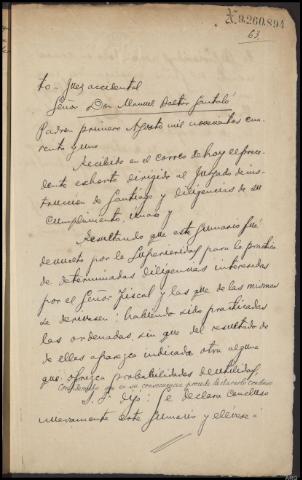 N.9.260.894
63
to - Juez accidental
Señor Don Manuel Pastor Santaló
Padrón primero Agosto mil novecientos cua-
renta y uno
Recibido en el correo de hoy el prece-
dente exhorto dirigido al Juzgado de ins-
trucción de Santiago y diligencias de su
cumplimiento, unase y
Resultando que este sumario fué
devuelto por la Superioridad para la práctica
de determinadas diligencias interesadas
por el Señor Fiscal y las que de las mismas
se derivasen: habiendo sido practicadas
las ordenadas, sin que del resultado de
de ellas aparezca indicada otra alguna
que ofrezca probabilidades de utilidad,
Considerando que en su consecuencia procede declararlo concluso
S. Sª dijo: Se declara concluso
nuevamente este sumario y elévese a